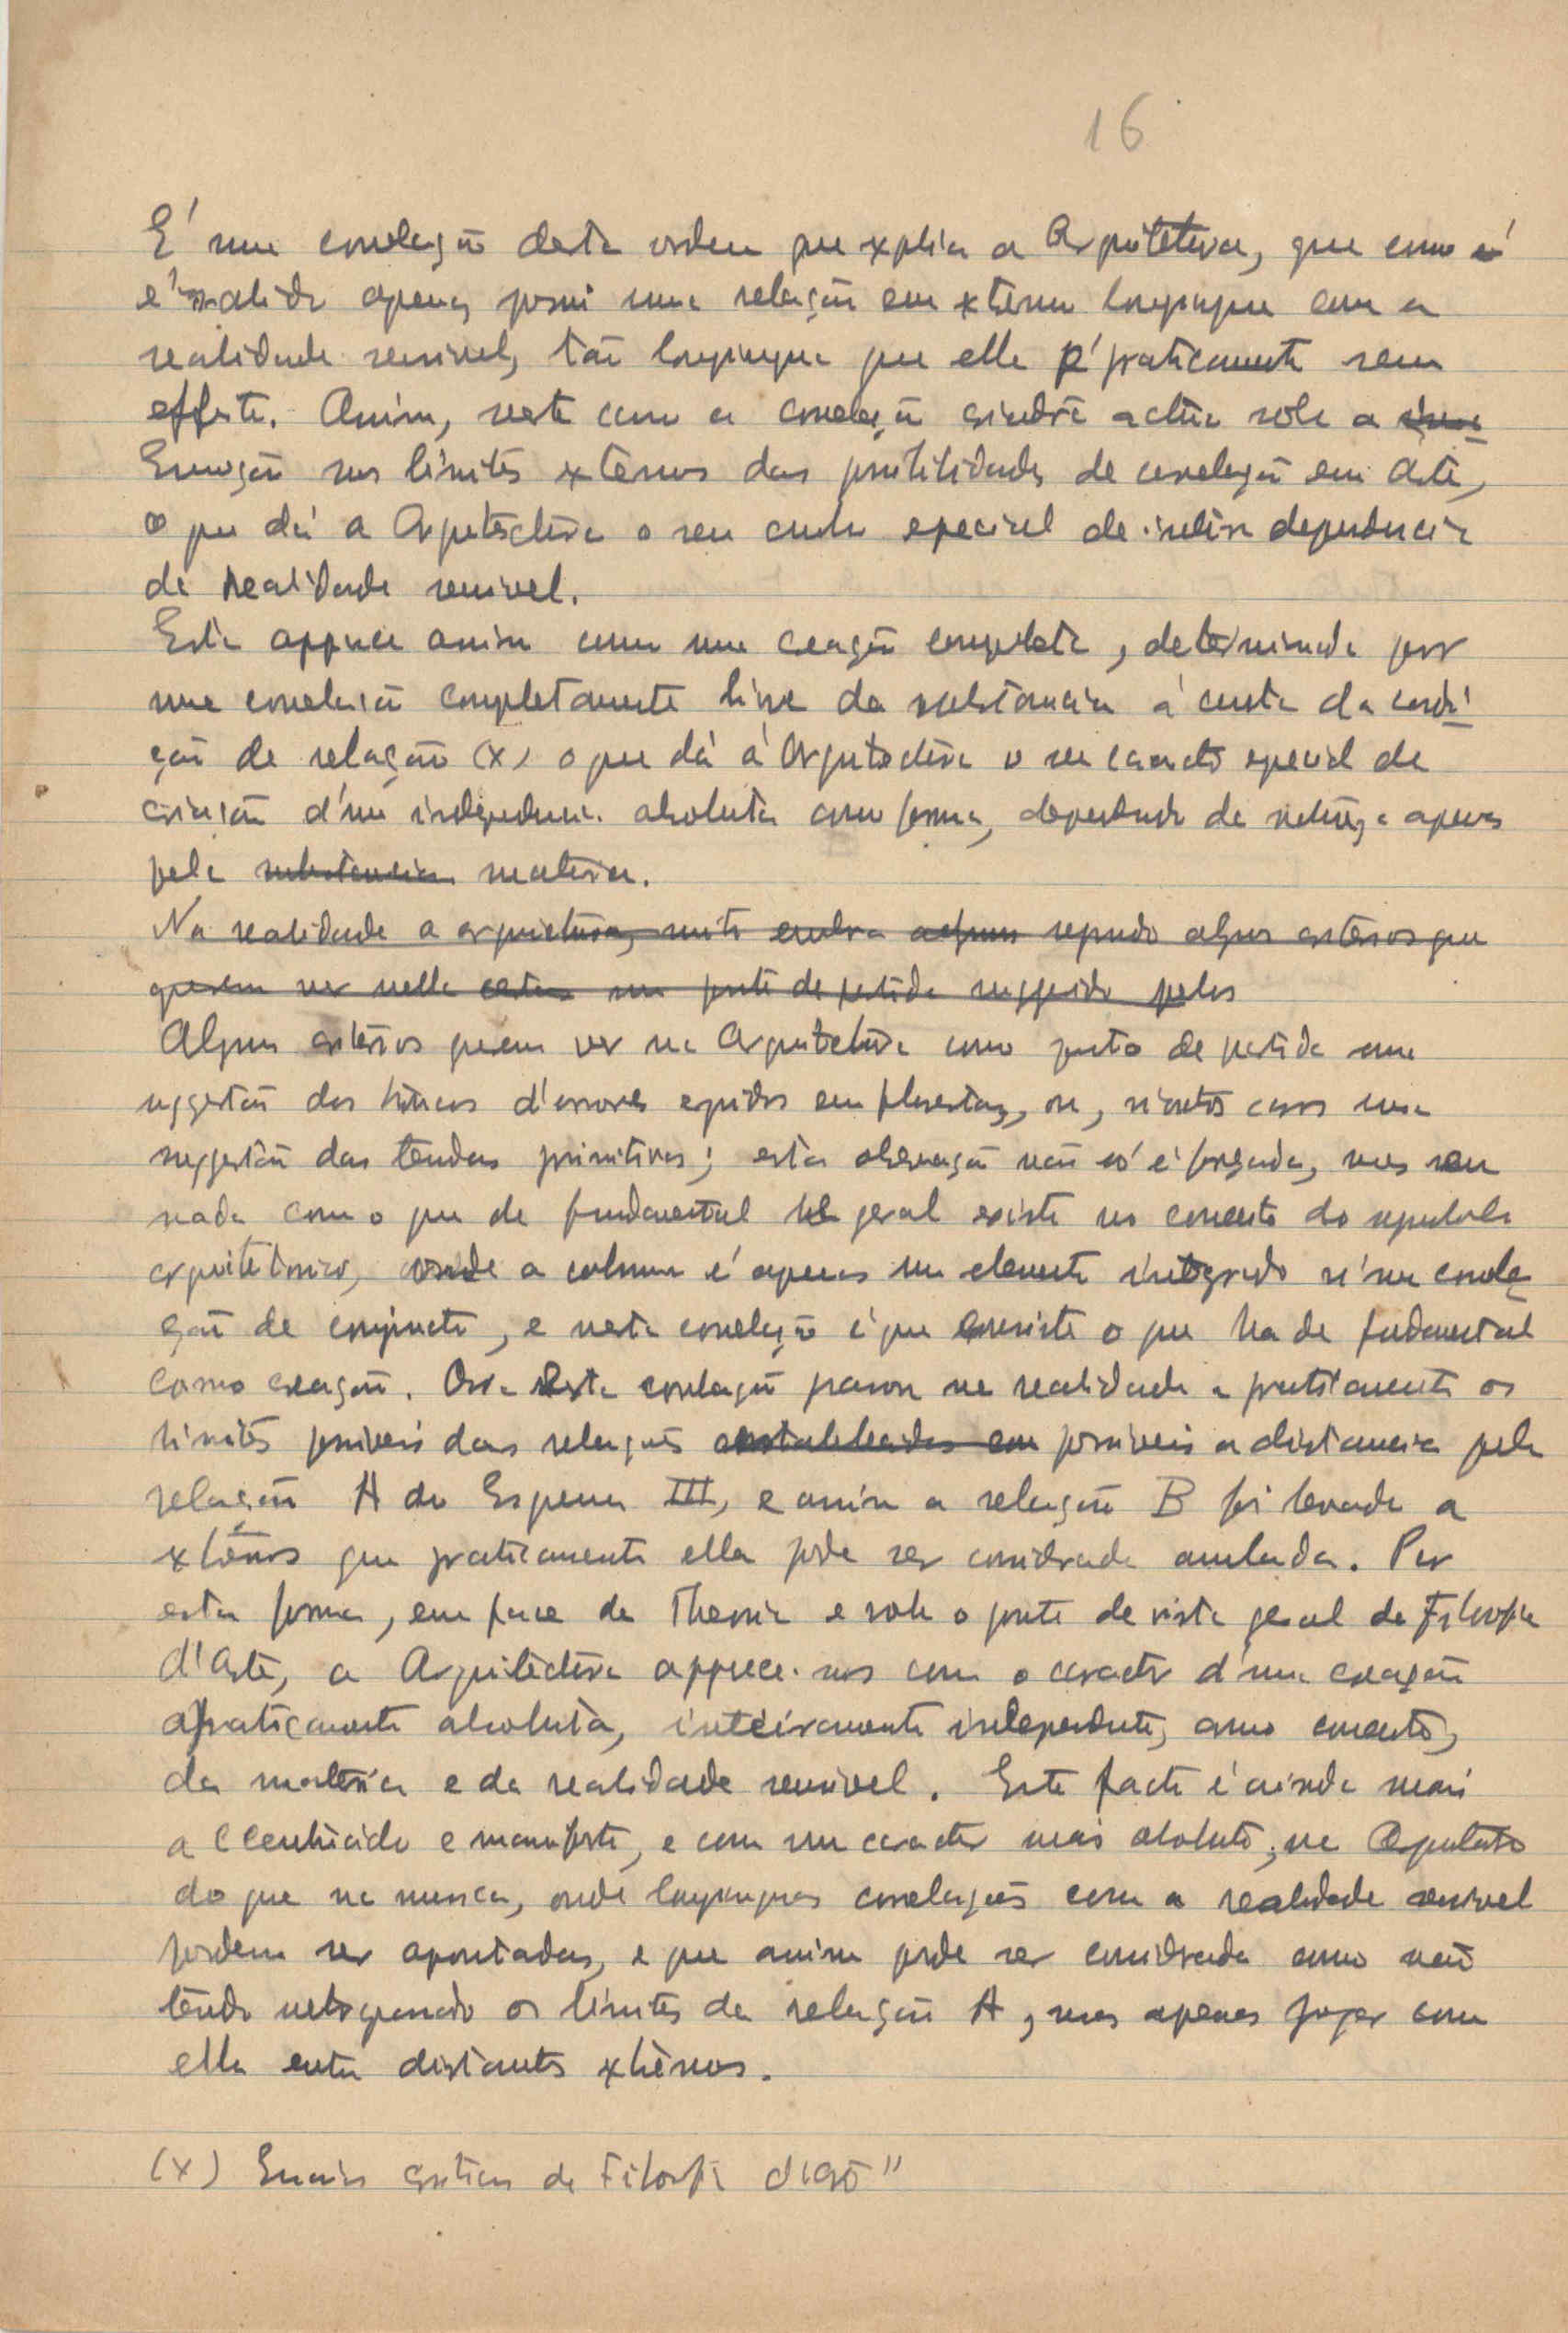 16
E' uma correlação desta ordem que explica a Arquitetura, que como
é sabido apenas possui uma relação em extremo longinqua com a
realidade sensivel, tão longinqua que ella é praticamente sem
effeito. Assim, neste caso a correlação ainda sobre a
Emoção nos limites extremos das possibilidades de correlação em Arte,
o que dá a Arquitectura o seu cunho especial de inteira dependencia
da realidade sensivel.
Esta apparece assim como uma creação completa, determinada por
uma correlação completamente livre da substancia á custa da condi-
ção de relação (x) o que dá á Arquitectura o seu caracter especial de
criação d'uma independencia absoluta como forma, dependendo da natureza apenas
pela substancia materia.
Na realidade a arquictetura, muito embora segundo alguns criterios que
querem ver nella um ponto de partida suggerido pelos
Alguns criterios querem ver na Arquitectura como ponto de partida uma
suggestão dos troncos d'arvores erguidos em florestas, ou, n'outros casos uma
suggestão das tendas primitivas; esta observação não só é forçada, mas sem
nada com o que de fundamental geral existe no conceito do
arquitetonico, onde a columna é apenas um elemento integrado n'uma correla-
ção de conjuncto, e nesta correlação é que consiste o que ha de fundamental
como creação. Ora esta correlação passou na realidade a praticamente os
limites possiveis das relações estabelecidas em possiveis a distancia pela
relação A do Esquema III, e assim a relação B foi levada a
extremos que praticamente ella pode ser considerada anulada. Por
esta forma, em face da Theoria e sob o ponto de vista geral da Filosofia
d'Arte, a Arquitectura apparece-nos com o caracter d'uma creação
praticamente absoluta, inteiramente independente, como conceito,
da materia e da realidade sensivel. Este facto é ainda mais
accentuado e manifesto, e com um caracter mais absoluto, na Arquitectura
do que na musica, onde longinquas correlações com a realidade sensivel
podem ser apontadas, e que assim pode ser considerada como não
tendo ultrapassado os limites da relação A, mas apenas jogar com
ella entre distantes extremos.
(x) Ensaios criticos de Filosofia d'Arte"